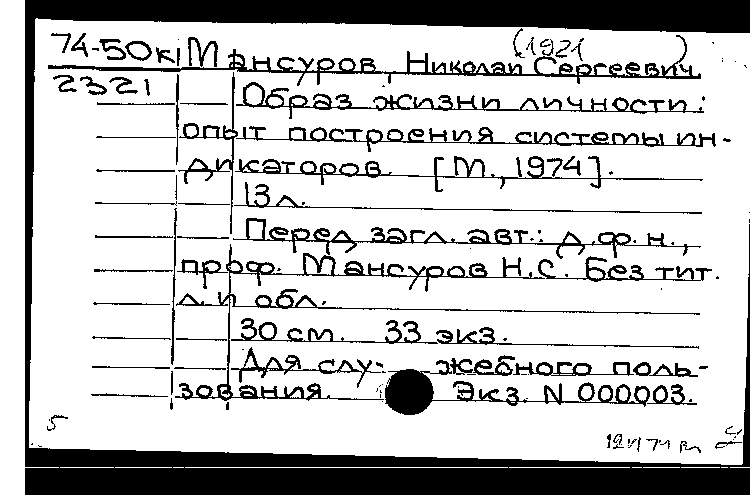 (1921 )
74-50к Мансуров, Николай Сергеевич.
2321
Образ жизни личности:
опыт построения системы ин-
дикаторов. [М., 1974].
13 л.
Перед загл. авт.: д.ф.н.,
проф. Мансуров Н.С. Без тит.
л. и обл.
30 см. 33 экз.
Для слу- жебного поль-
зования. Экз. N 000003.
5